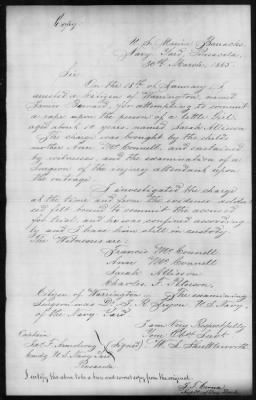 Copy.
U. S. Marine Barracks
Navy Yard, Pensacola
30th March, 1865.
Sir
On the 18th of January I
arrested a citizen of Warrington, named
James for attempting to commit
a rape upon the person of a little girl
aged about 10 years, named Sarah Allison
The charge was brought by the child's
mother Ann McConnell, and sustained
by witnesses, and the examination of a
Surgeon of the injury attendant upon
the outrage.
I investigated the charge
at the time and from the evidence adduc
ed felt bound to commit the accused
for trial and he was confined according
ly and I have him still in custody
The Witnesses are:
Francis McConnell
Ann McConnell
Sarah Allison
Charles F.
Citizen of Warrington. The examining
Surgeon was Dr. U. S. Navy,
of the Navy Yard
I am Very Respectfully
Your Obdt Servt
(Signed) W. L. Shuttleworth
Captain
Jas. F. Armstrong
Comdg U. S. Navy Yard
Pensacola
I certify the above to be a true and correct copy from the original.